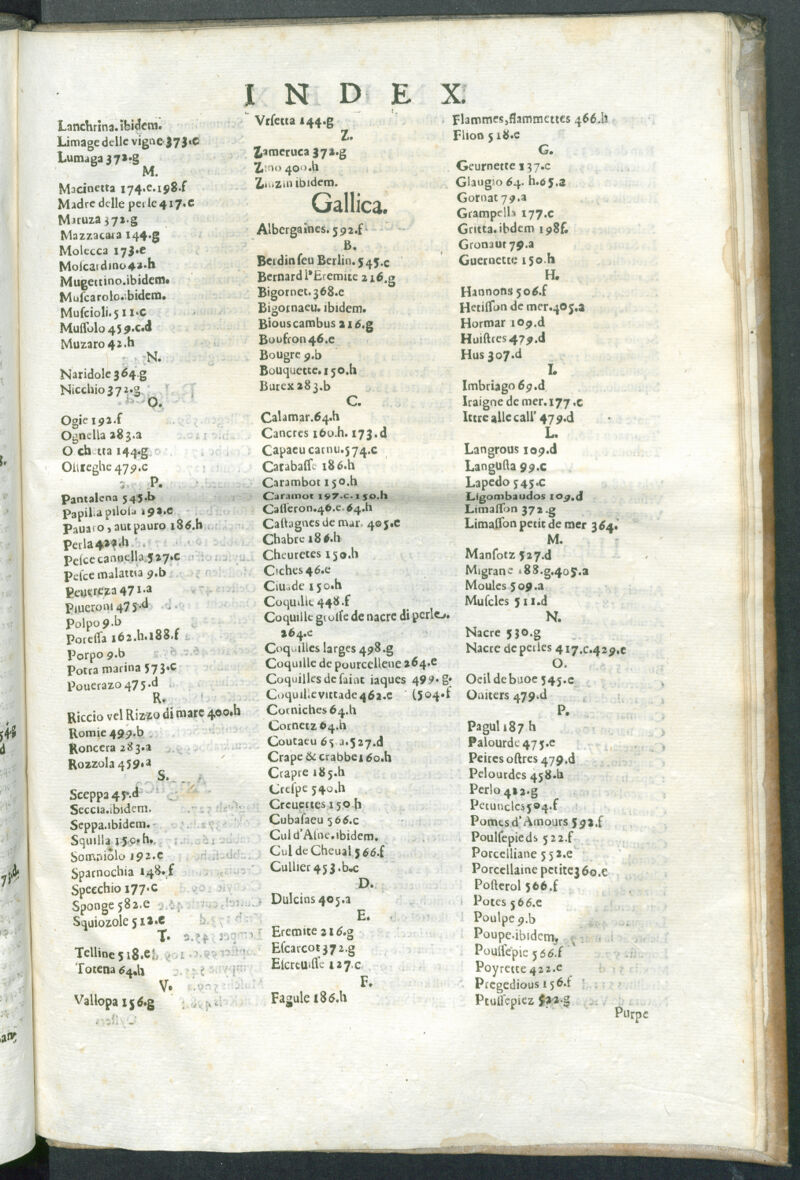 INDEX.
Lanchrina.ibidem.
Limage delle vigne 373.c
Lumaga 372.g
M.
Macinetta 174.e.198.f
Madre delle perle 417.e
Maruza 372.g
Mazzacara 144.g
Molecca 173.e
Moſcardino 42.h
Mugettino.ibidem.
Muſcarolo.ibidem.
Muſcioli.511.c
Muſſolo 459.c.d
Muzaro 42.h
N.
Naridole 364.g
Nicchio 372.g
O.
Ogie 192.f
Ognella 283.a
144.g
Oſtreghe 479.c
P.
Pantalena 545.b
Papilla piloſa 192.e
Pauaro, aut pauro 186.h
Perla 422.h
Peſce cannella 527.c
Peſce malattia 9.b
Peuerеza 471.a
Piueroni 475.d
Polpo 9.b
Poreſſa 162.h.188.f
Porpo 9.b
Potta marina 573.c
Pouerazo 475.d
R.
Riccio vel Rizzo di mare 400.h
Romie 499.b
Roncera 283.a
Rozzola 459.a
S.
Sceppa 45.d
Seccia.ibidem.
Seppa.ibidem.
Squilla 150.h.
Somniolo 192.e
Sparnochia 148.f
Specchio 177.c
Sponge 582.e
Squiozole 512.e
T.
Telline 518.e
Totena 64.h
V.
Vallopa 156.g
Vrſetta 144.g
Z.
Zameruca 372.g
Zino 400.h
Zinzin ibidem.
Gallica.
Albergaines.592.f
B.
Berdin ſeu Berlin.545.c
Bernard l'Eremite 216.g
Bigornet.368.e
Bigornaeu.ibidem.
Bious cambus 216.g
Boufron 46.e
Bougre 9.b
Bouquette.150.h
Burex 283.b
C.
Calamar.64.h
Cancres 160.h.173.d
Capaeu carnu.574.c
Carabaſſe 186.h
Carambot 150.h
Caramot 197.c.150.h
Caſſeron.46.e.64.h
Caſtagnes de mar. 405.e
Chabre 186.h
Cheuretes 150.h
Ciches 46.e
Ciuade 150.h
Coquille 448.f
Coquille groſſe de nacre di perles.
264.e
Coquilles larges 498.g
Coquille de pourcelleue 264.e
Coquilles de ſaint iaques 499.g.
Coquille vittade 462.e (504.f
Corniches 64.h
Cornetz 64.h
Coutaeu 65.a.527.d
Crape & crabbe 160.h
Crapre 185.h
Creſpe 540.h
Creuettes 150.h
Cubaſaeu 566.c
Cul d'Aſne.ibidem.
Cul de Cheual 566.f
Cullier 453.b.c
D.
Dulcins 405.a
E.
Eremite 216.g
Eſcarcot 372.g
Eſcreuiſſe 127.c
F.
Fagule 186.h
Flammes,flammettes 466.h
Flion 518.c
G.
Geurnette 137.c
Glaugio 64.h.65.a
Gornat 79.a
Grampella 177.c
Gritta.ibdem 198f.
Gronaut 79.a
Guernette 150.h
H.
Hannons 506.f
Heriſſon de mer.405.a
Hormar 109.d
Huiſtres 479.d
Hus 307.d
I.
Imbriago 69.d
Iraigne de mer.177.c
Ittre alle call' 479.d
L.
Langrous 109.d
Languſta 99.c
Lapedo 545.c
Ligombaudos 109.d
Limaſſon 372.g
Limaſſon petit de mer 364.
M.
Manſotz 527.d
Migrane 188.g.405.a
Moules 509.a
Muſcles 511.d
N.
Nacre 530.g
Nacre de perles 417.c.429.e
O.
Oeil de buoe 545.c
Oniters 479.d
P.
Pagul 187 h
Palourde 475.e
Peires oſtres 479.d
Pelourdes 458.h
Perlo 422.g
Petuncles 504.f
Pomes d'Amours 592.f
Poulſepieds 522.f
Porcelliane 552.e
Porcellaine petite 360.e
Poſterol 566.f
Potes 566.e
Poulpe 9.b
Poupe.ibidem.
Pouſſepie 566.f
Poyrette 422.e
Pregedious 156.f
Ptuſſepiez 522.g
Purpe